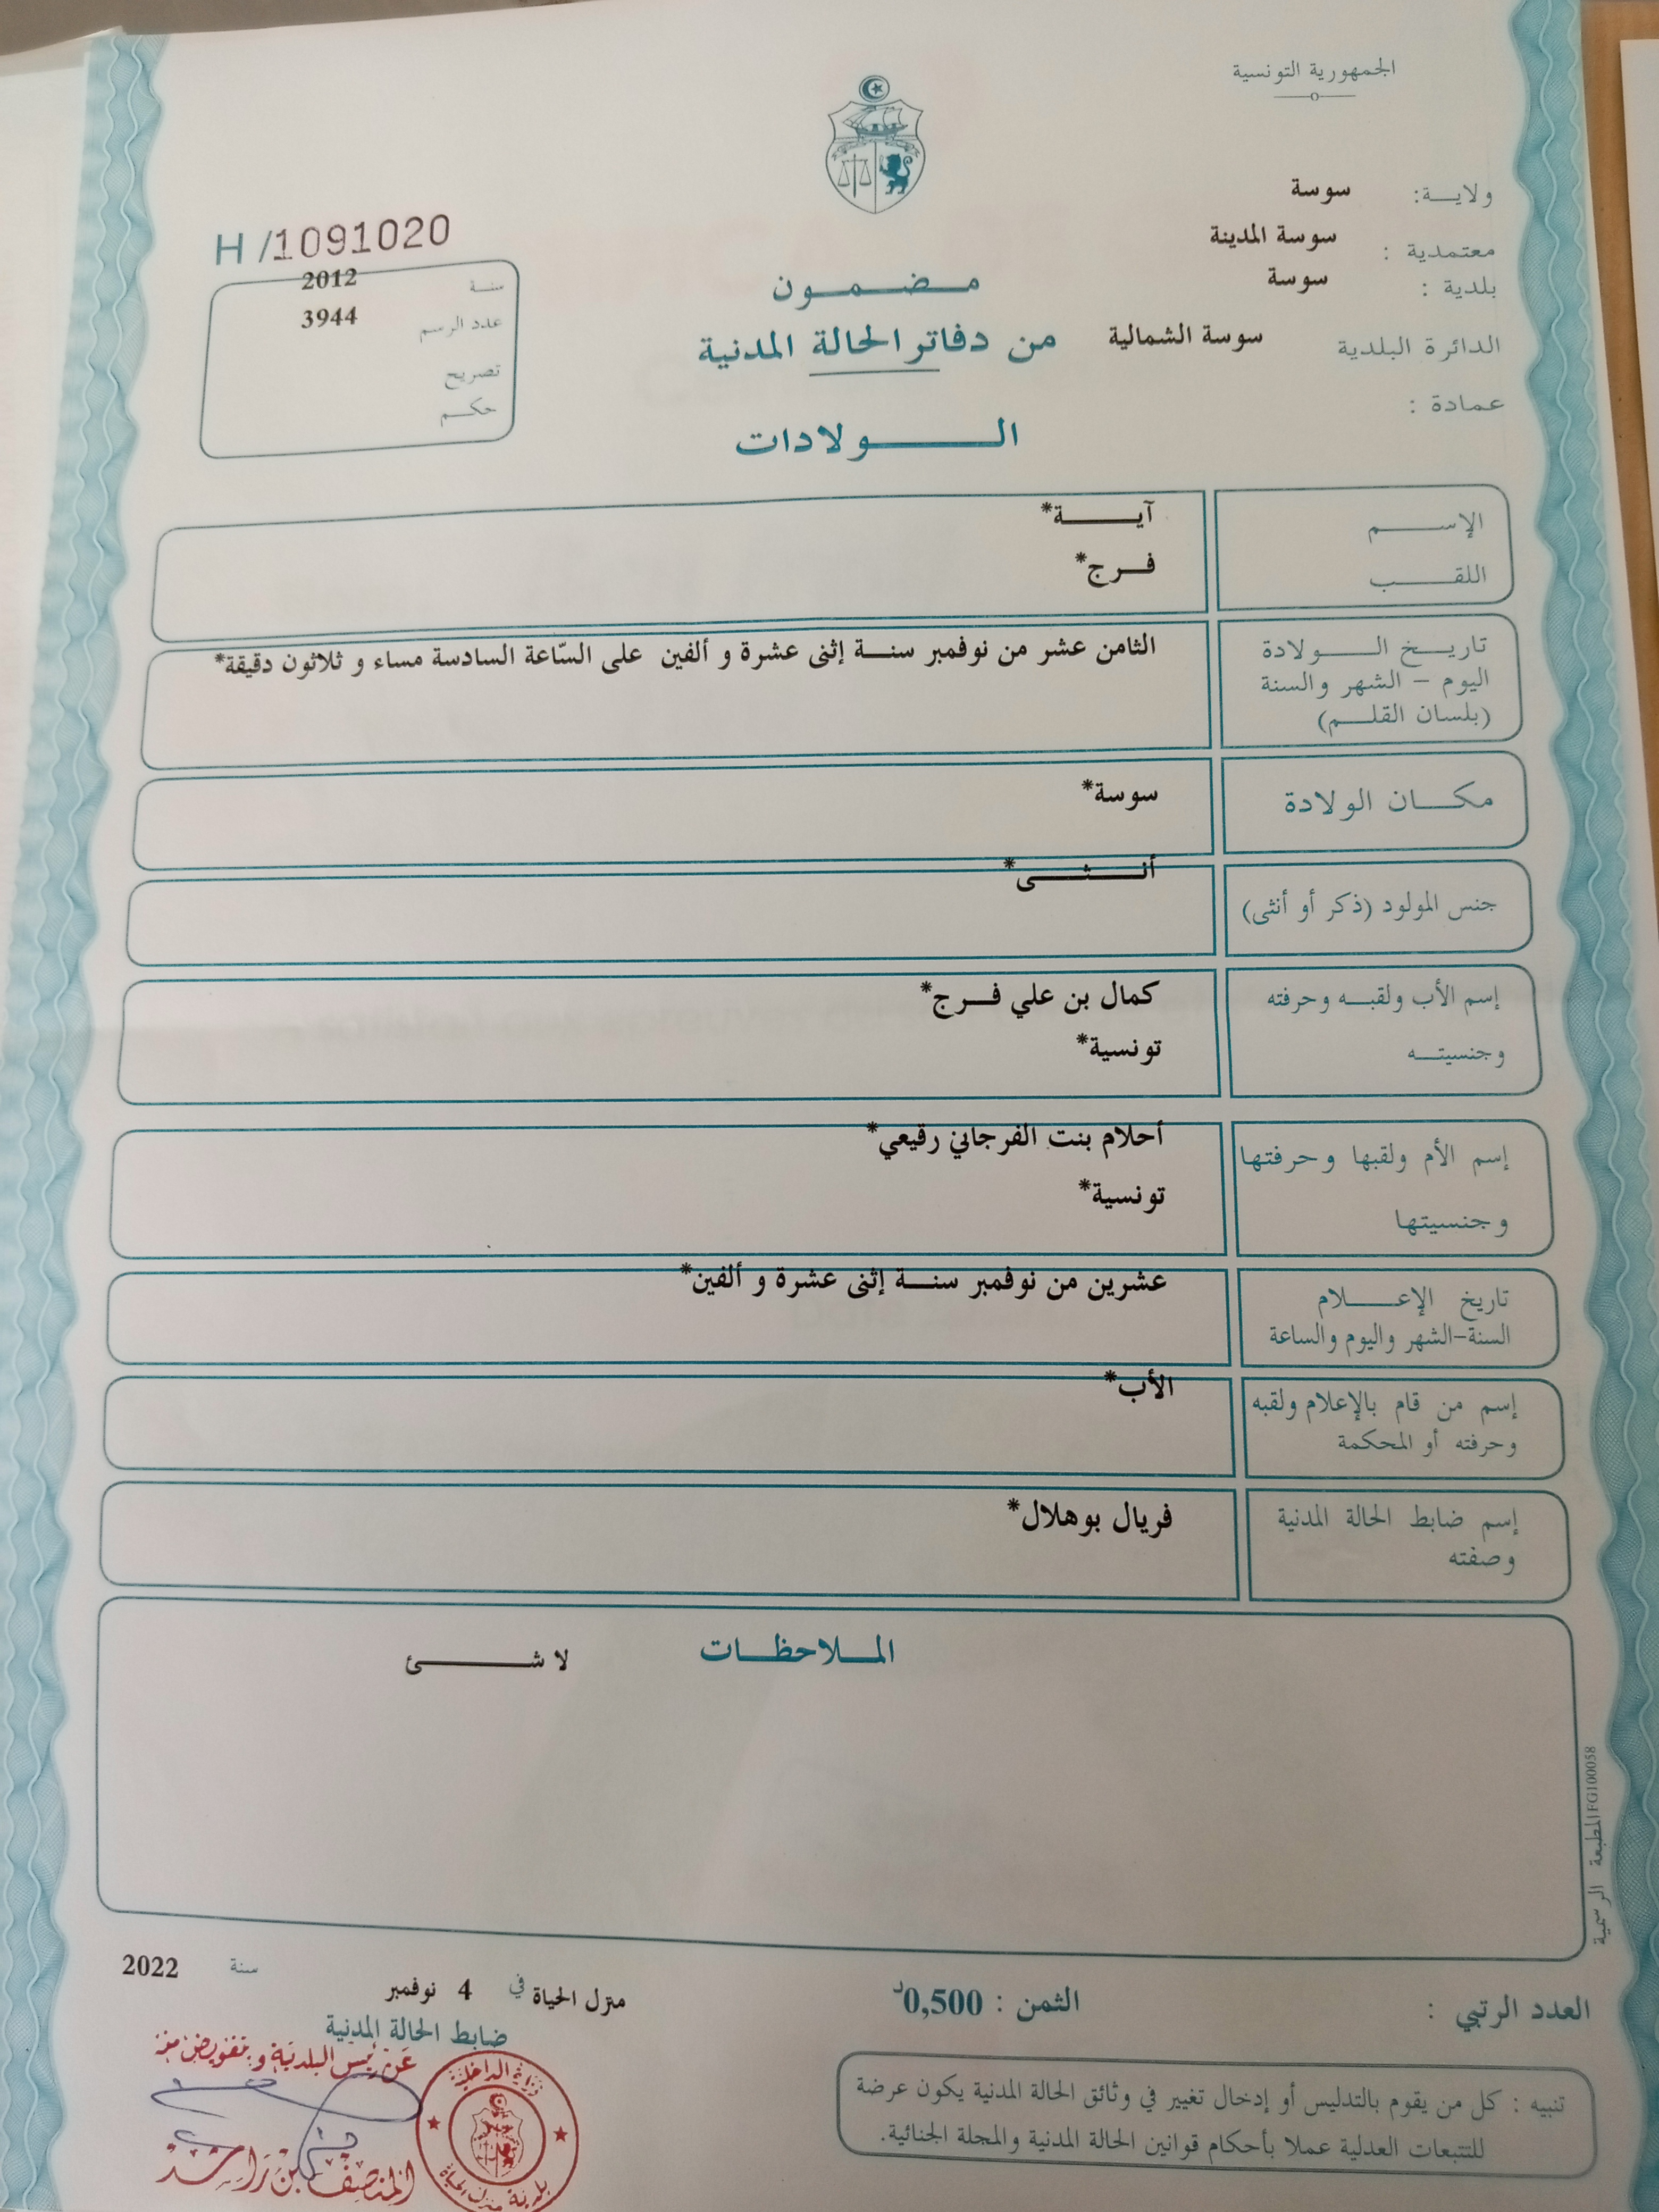 الجمهورية التونسية
ولاية: سوسة
معتمدية : سوسة المدينة
بلدية : سوسة
الدائرة البلدية سوسة الشمالية
عمادة :
H /1091020
سنة 2012
عدد الرسم 3944
تصريح
حكم
مضمون
من دفاتر الحالة المدنية
الولادات
الإسم آية*
اللقب فرج*
تاريخ الولادة الثامن عشر من نوفمبر سنة إثنى عشرة و ألفين على السّاعة السادسة مساء و ثلاثون دقيقة*
اليوم – الشهر والسنة
(بلسان القلم)
مكان الولادة سوسة*
جنس المولود (ذكر أو أنثى) أنثى*
إسم الأب ولقبه وحرفته كمال بن علي فرج*
وجنسيته تونسية*
إسم الأم ولقبها وحرفتها أحلام بنت الفرجاني رقيعي*
وجنسيتها تونسية*
تاريخ الإعلام عشرين من نوفمبر سنة إثنى عشرة و ألفين*
السنة-الشهر واليوم والساعة
إسم من قام بالإعلام ولقبه الأب*
وحرفته أو المحكمة
إسم ضابط الحالة المدنية فريال بوهلال*
وصفته
الملاحظات لا شئ
المطبعة الرسمية FG100058
العدد الرتبي :
الثمن : 0,500د
منزل الحياة في 4 نوفمبر سنة 2022
ضابط الحالة المدنية
عن رئيس البلدية و بتفويض منه
المنصف بن راشد
وزارة الداخلية
بلدية منزل الحياة
تنبيه : كل من يقوم بالتدليس أو إدخال تغيير في وثائق الحالة المدنية يكون عرضة
للتتبعات العدلية عملا بأحكام قوانين الحالة المدنية والمجلة الجنائية.